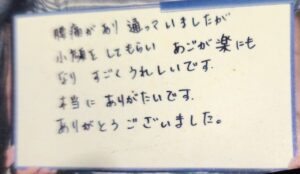 腰痛があり 通っていましたが
小顔をしてもらい あごが楽にも
なり すごくうれしいです。
本当に ありがたいです。
ありがとうございました。